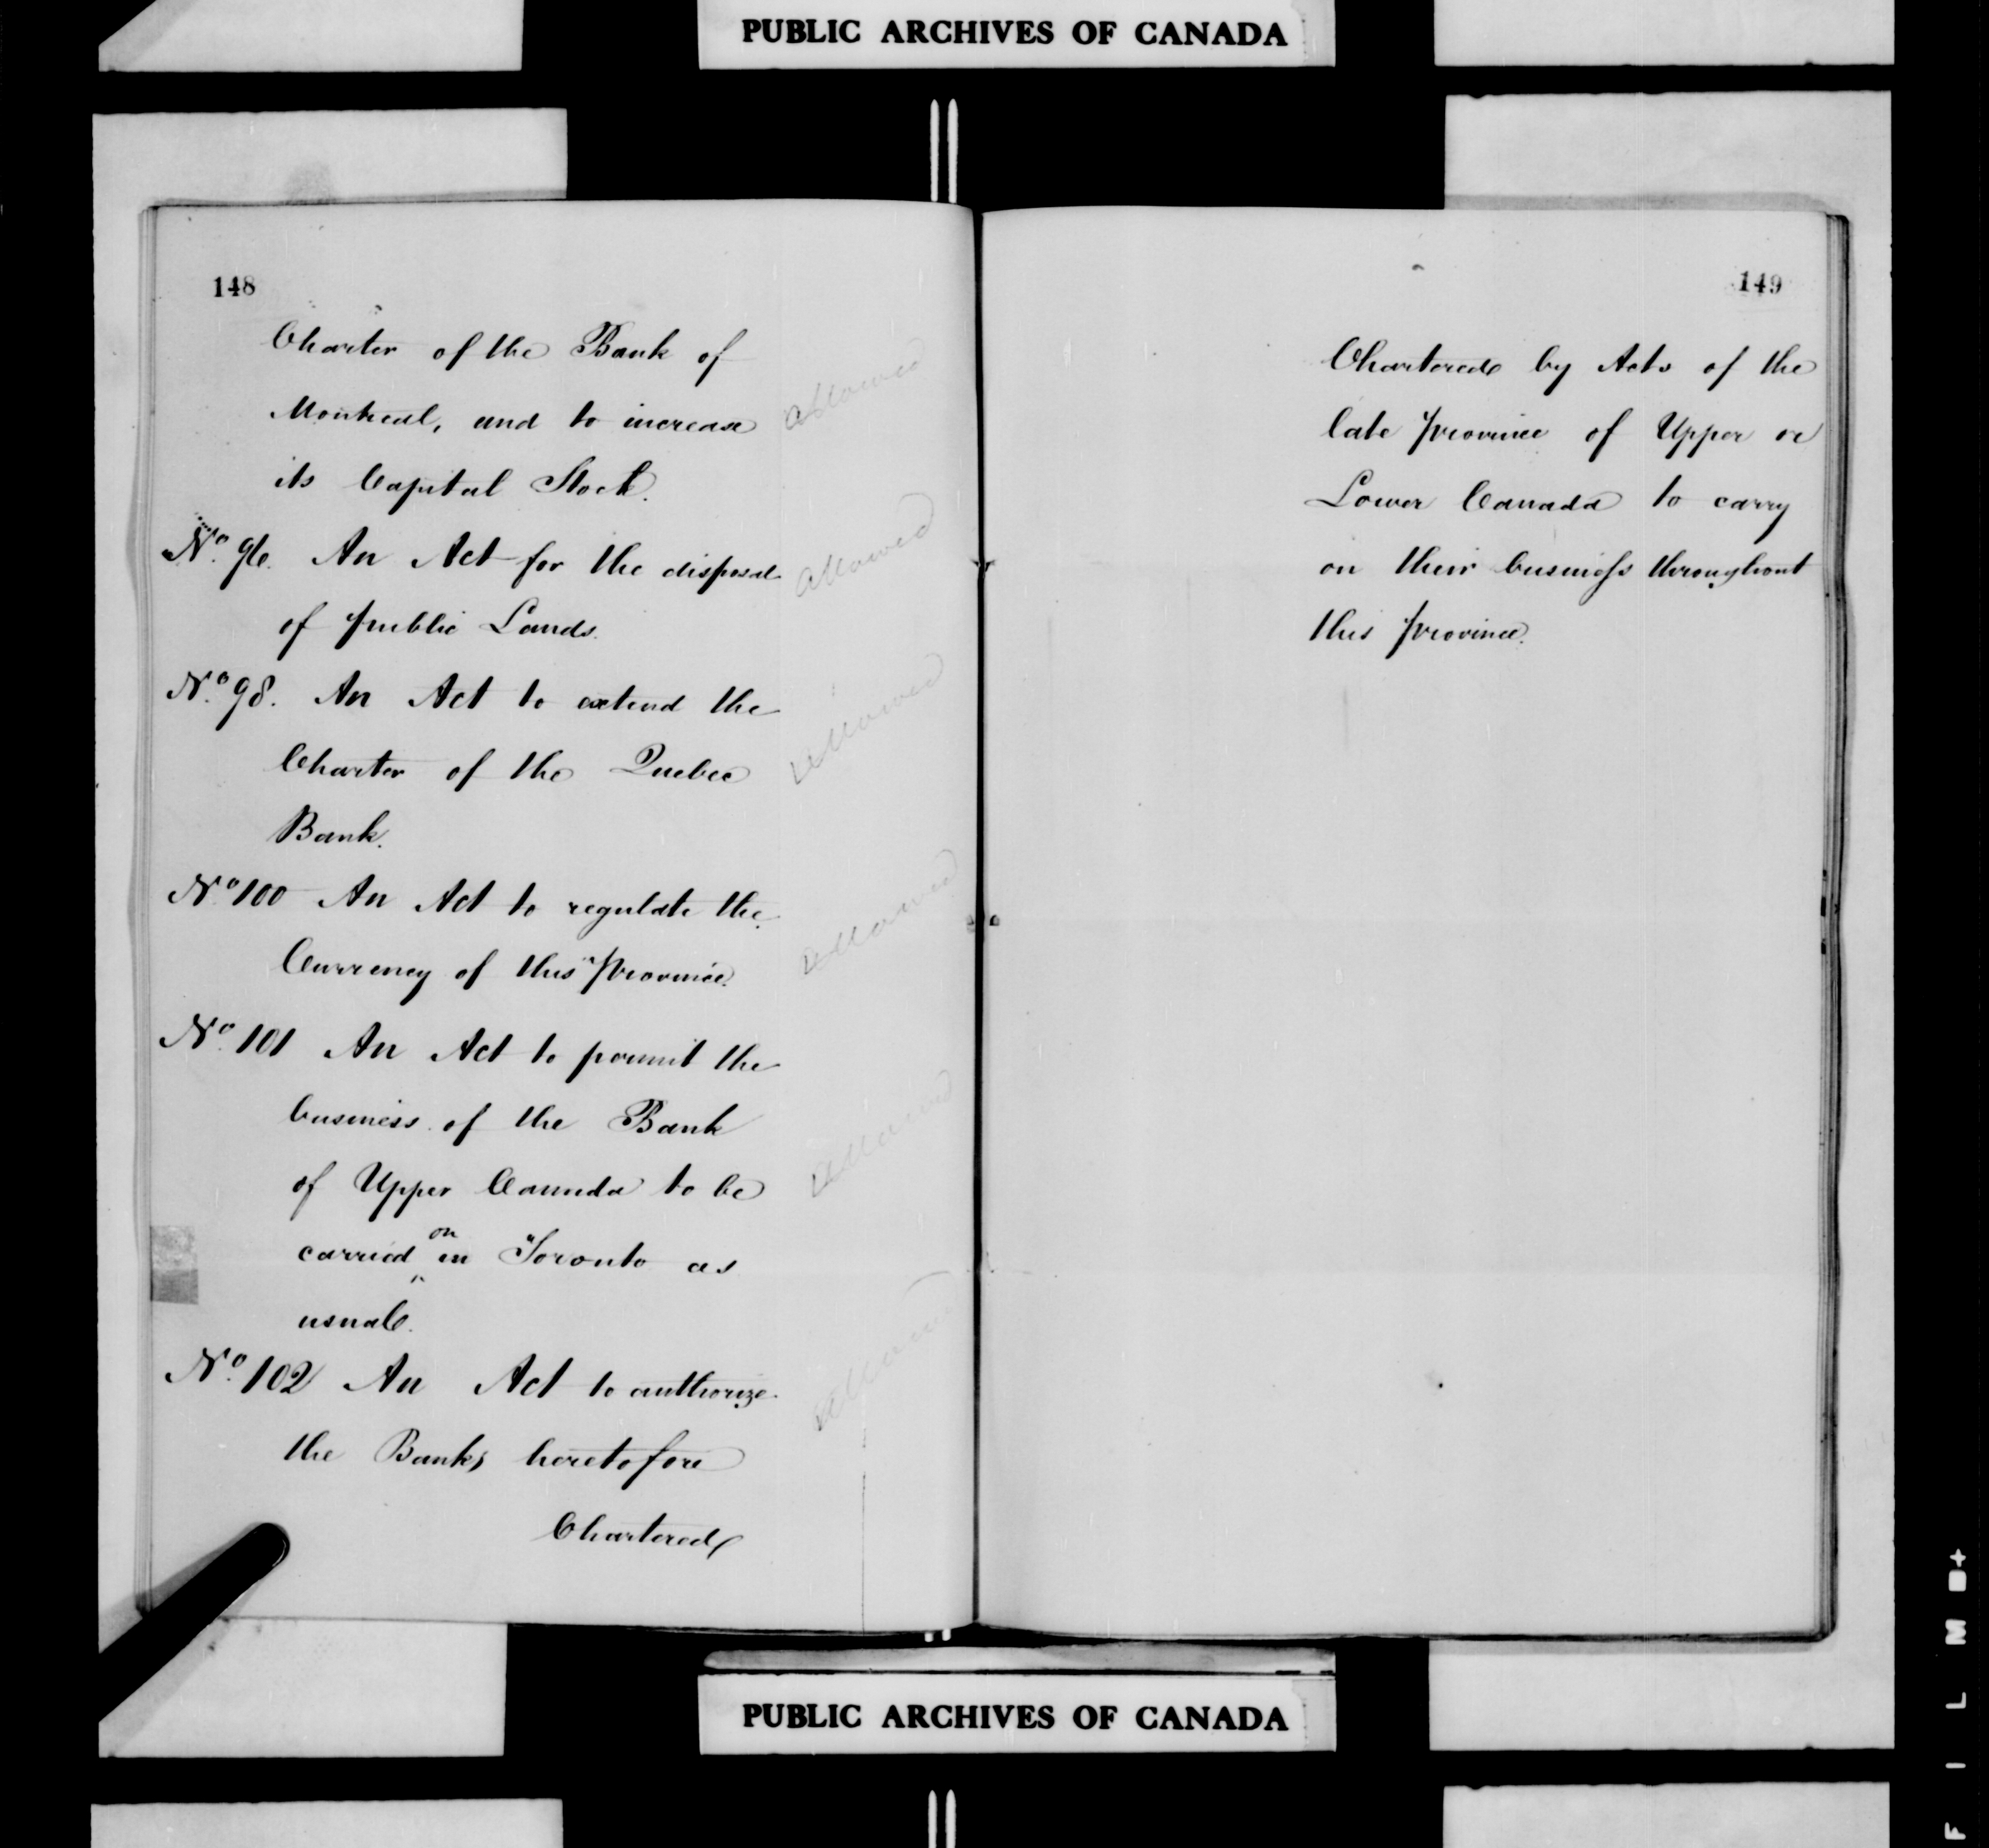 PUBLIC ARCHIVES OF CANADA
148
Charter of the Bank of
Montreal, and to increase
allowed
its Capital Stock.
No. 96. An Act for the disposal
allowed
of public Lands.
No. 98. An Act to extend the
allowed
Charter of the Quebec
Bank.
No 100 An Act to regulate the
allowed
Currency of this Province.
No. 101 An Act to permit the
business of the Bank
allowed
of Upper Canada to be
carried on in Toronto as
usual.
No. 102 An Act to authorize
allowed
the Banks heretofore
Chartered
149
Chartered by Acts of the
late Province of Upper or
Lower Canada to carry
on their business throughout
this Province.
PUBLIC ARCHIVES OF CANADA
F I L M